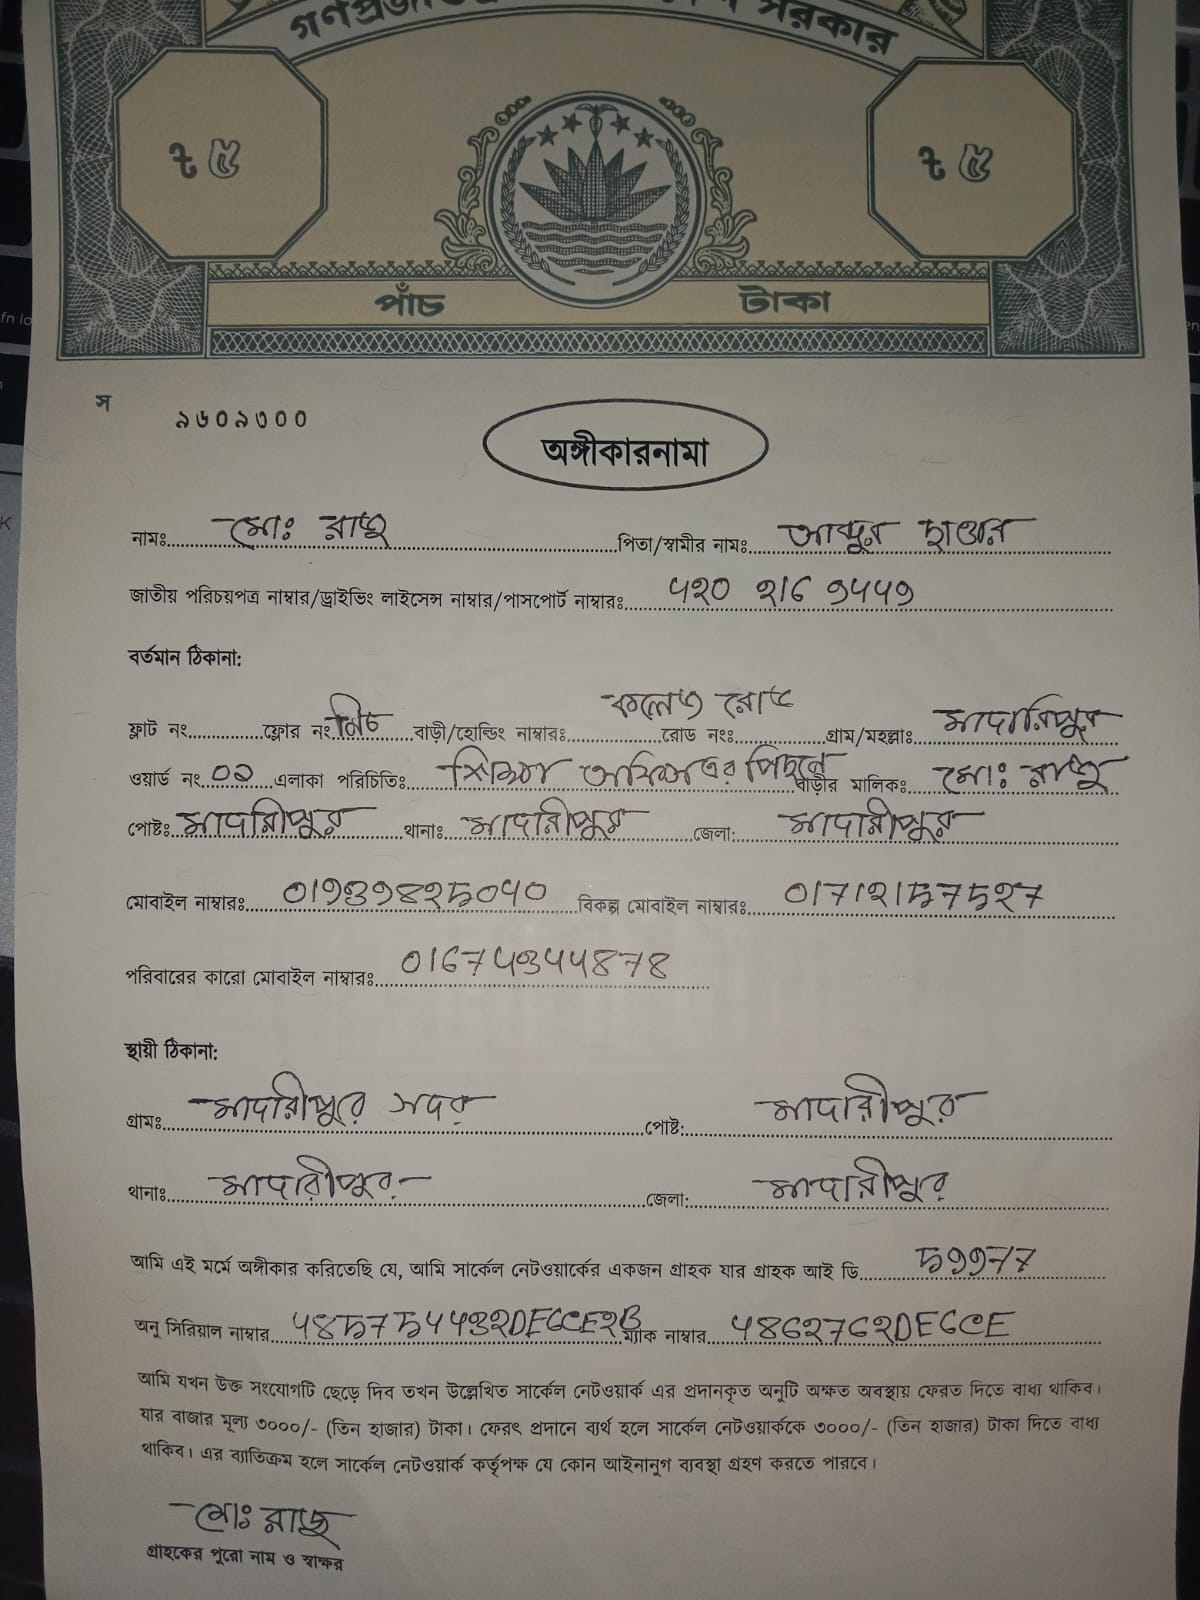 সরকার
৳ ৫ ৳ ৫
পাঁচ টাকা
স ৯৬০৯৩০০
অঙ্গীকারনামা
নামঃ মোঃ রাজু পিতা/স্বামীর নামঃ আব্দুর
জাতীয় পরিচয়পত্র নাম্বার/ড্রাইভিং লাইসেন্স নাম্বার/পাসপোর্ট নাম্বারঃ
বর্তমান ঠিকানা:
কলেজ রোড
ফ্লাট নং ফ্লোর নং নিচ বাড়ী/হোল্ডিং নাম্বারঃ রোড নংঃ গ্রাম/মহল্লাঃ মাদারিপুর
ওয়ার্ড নং ০২ এলাকা পরিচিতিঃ শিক্ষা অফিসের পিছনে বাড়ীর মালিকঃ মোঃ রাজু
পোষ্টঃ মাদারীপুর থানাঃ মাদারীপুর জেলা: মাদারীপুর
মোবাইল নাম্বারঃ বিকল্প মোবাইল নাম্বারঃ
পরিবারের কারো মোবাইল নাম্বারঃ
স্থায়ী ঠিকানা:
গ্রামঃ মাদারীপুর সদর পোষ্ট: মাদারীপুর
থানাঃ মাদারীপুর জেলা: মাদারীপুর
আমি এই মর্মে অঙ্গীকার করিতেছি যে, আমি সার্কেল নেটওয়ার্কের একজন গ্রাহক যার গ্রাহক আই ডি
অনু সিরিয়াল নাম্বার ম্যাক নাম্বার
আমি যখন উক্ত সংযোগটি ছেড়ে দিব তখন উল্লেখিত সার্কেল নেটওয়ার্ক এর প্রদানকৃত অনুটি অক্ষত অবস্থায় ফেরত দিতে বাধ্য থাকিব।
যার বাজার মূল্য ৩০০০/- (তিন হাজার) টাকা। ফেরৎ প্রদানে ব্যর্থ হলে সার্কেল নেটওয়ার্ককে ৩০০০/- (তিন হাজার) টাকা দিতে বাধ্য
থাকিব। এর ব্যাতিক্রম হলে সার্কেল নেটওয়ার্ক কর্তৃপক্ষ যে কোন আইনানুগ ব্যবস্থা গ্রহণ করতে পারবে।
মোঃ রাজু
গ্রাহকের পুরো নাম ও স্বাক্ষর